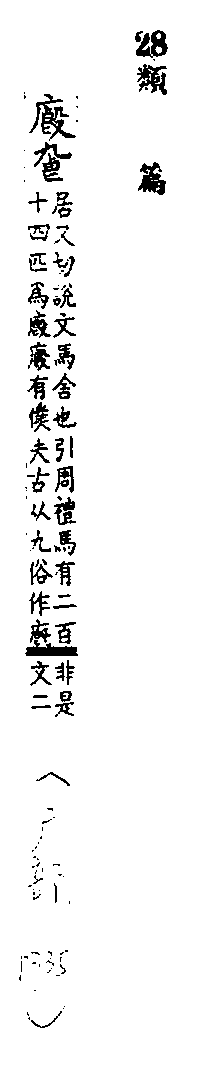 28類篇
廏
居又切說文馬舍也引周禮馬有二百
十四匹爲廏廏有僕夫古从九俗作廐
非是
文二
(广部 P335)